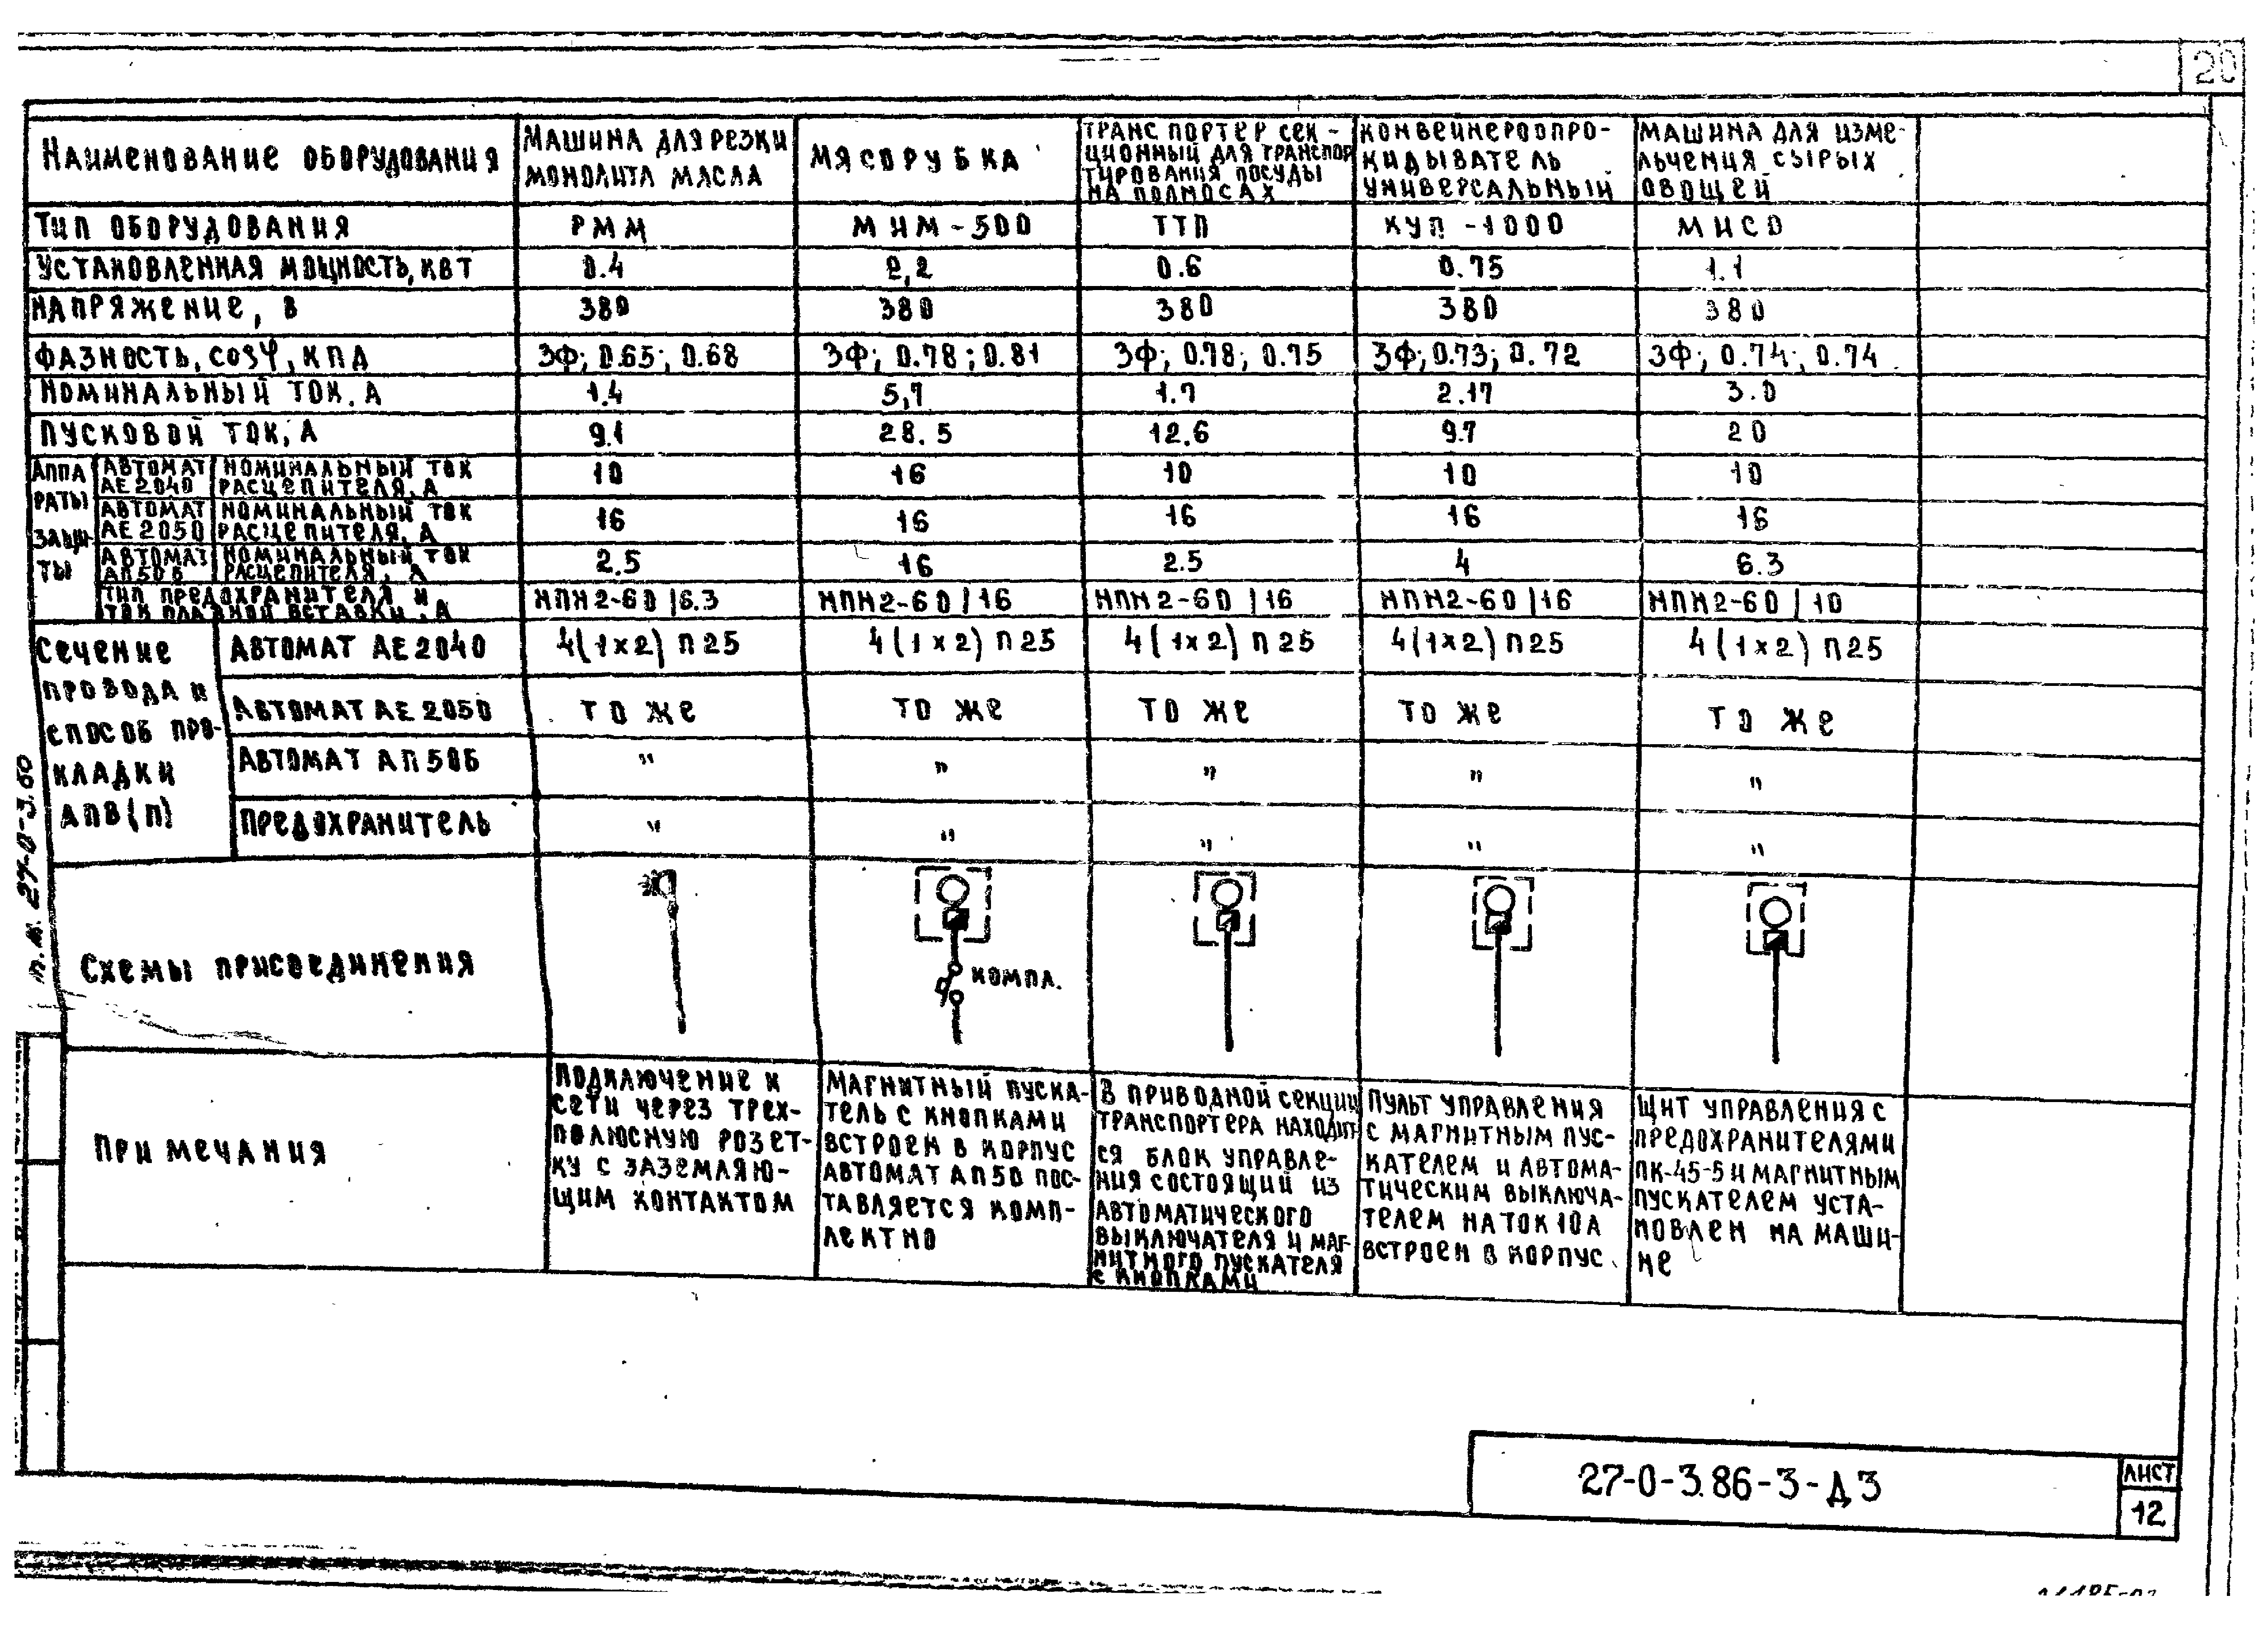 20
Наименование оборудования
Машина для резки
монолита масла
Мясорубка
Транспортер сек-
ционный для транспор
тирования посуды
на подносах
Конвейнероопро-
кидыватель
универсальный
Машина для изме-
льчения сырых
овощей
Тип оборудования
РММ
МИМ-500
ТТП
КУП-1000
МИСО
Установленная мощность, кВт
0.4
2,2
0.6
0.75
1.1
Напряжение, В
380
380
380
380
380
Фазность, cosφ, КПД
3Ф; 0.65; 0.68
3Ф; 0.78; 0.81
3Ф; 0.78; 0.75
3Ф; 0.73; 0.72
3Ф; 0.74; 0.74
Номинальный ток. А
1.4
5,7
1.7
2.17
3.0
Пусковой ток, А
9.1
28.5
12.6
9.7
20
Аппа
раты
защи-
ты
Автомат
АЕ2040
Номинальный ток
расцепителя, А
10
16
10
10
10
Автомат
АЕ2050
Номинальный ток
расцепителя, А
16
16
16
16
16
Автомат
АП50Б
Номинальный ток
расцепителя, А
2.5
16
2.5
4
6.3
Тип предохранителя и
ток плавкой вставки, А
НПН2-60/6.3
НПН2-60/16
НПН2-60/16
НПН2-60/16
НПН2-60/10
Сечение
провода и
способ про-
кладки
АПВ(П)
Автомат АЕ2040
4(1х2) П25
4(1х2) П25
4(1х2) П25
4(1х2) П25
4(1х2) П25
Автомат АЕ2050
То же
То же
То же
То же
То же
Автомат АП50Б
"
"
"
"
"
Предохранитель
"
"
"
"
"
Схемы присоединения
компл.
Примечания
Подключение к
сети через трех-
полюсную розет-
ку с заземляю-
щим контактом
Магнитный пуска-
тель с кнопками
встроен в корпус
автомат АП50 пос-
тавляется комп-
лектно
В приводной секции
транспортера находит-
ся блок управле-
ния состоящий из
автоматического
выключателя и маг-
нитного пускателя
с кнопками
Пульт управления
с магнитным пус-
кателем и автома-
тическим выключа-
телем на ток 10А
встроен в корпус
Щит управления с
предохранителями
ПК-45-5 и магнитным
пускателем уста-
новлен на маши-
не
т.м. 27-0-3.60
27-0-3.86-3-Д3
Лист
12